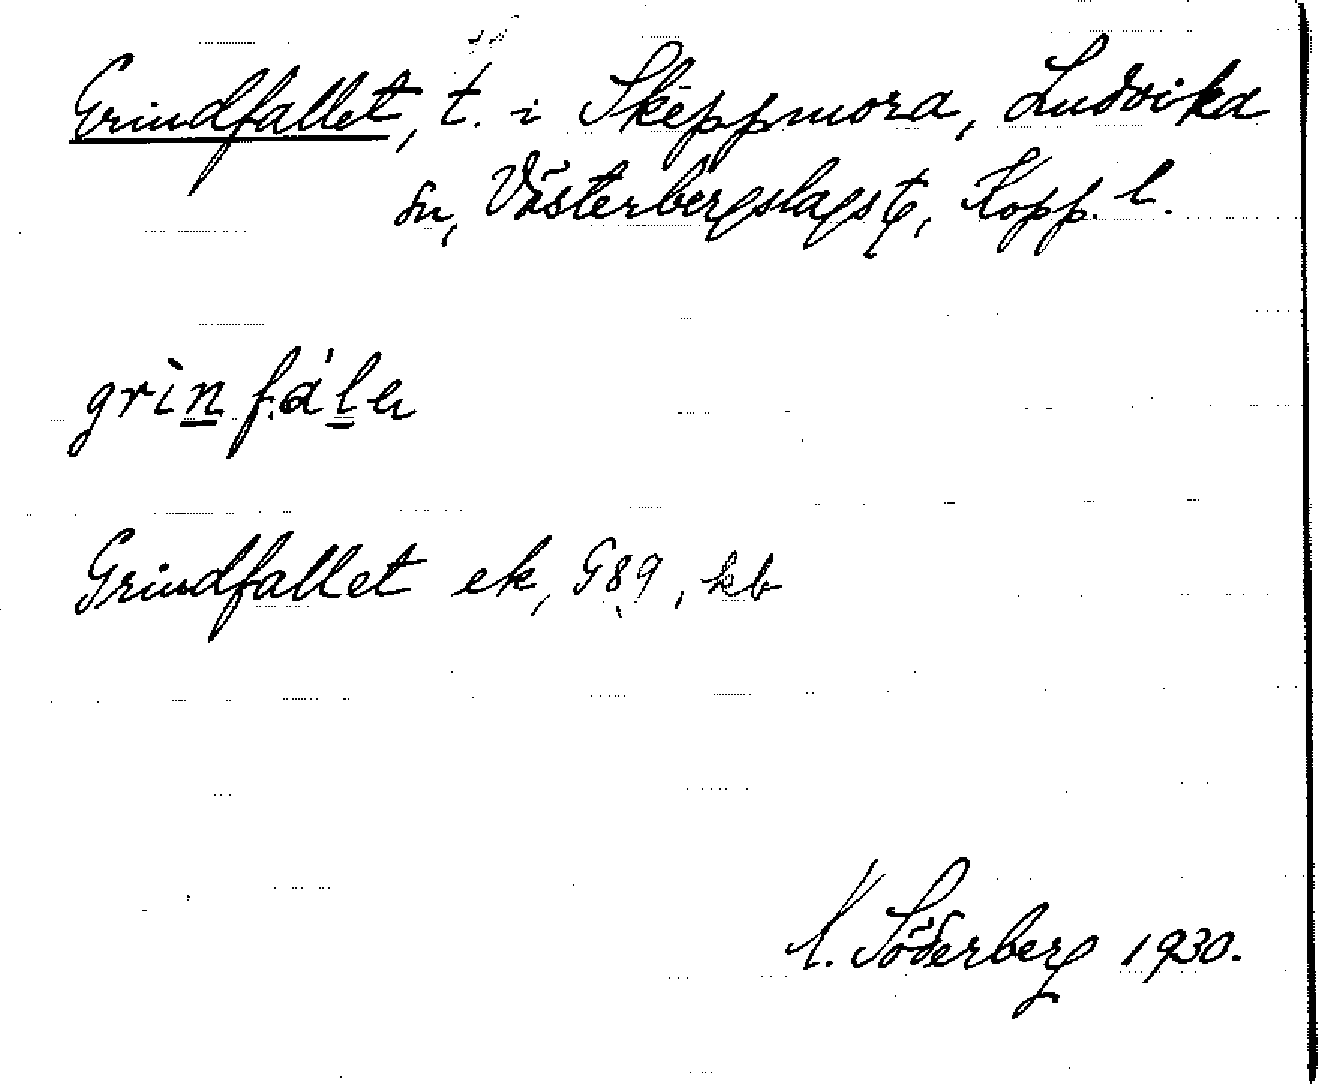 Grindfallet, t. i Skeppmora, Ludvika
sn, Västerbergslags tg, Kopp. l.
grìnfáḷ
Grindfallet ek, G89, kb
Söderberg 1930.